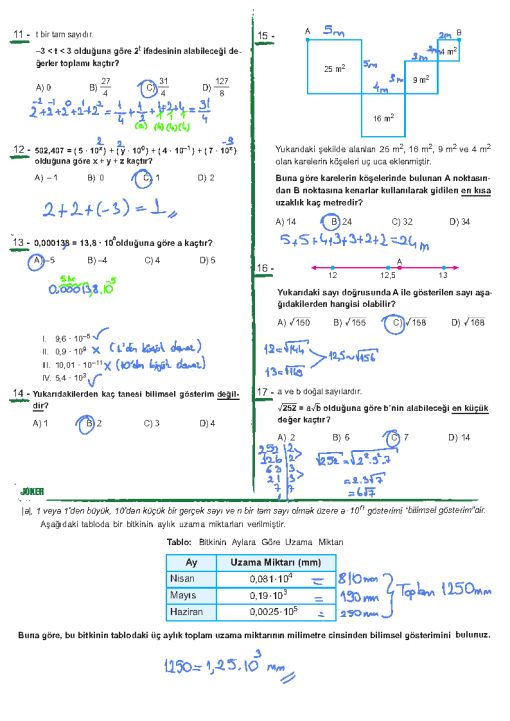 11 - t bir tam sayıdır.
–3 < t < 3 olduğuna göre 2ᵗ ifadesinin alabileceği de-
ğerler toplamı kaçtır?
A) 0 B) 27/4 C) 31/4 D) 127/8
2⁻²+2⁻¹+2⁰+2¹+2² = 1/4 + 1/2 + 1+2+4 = 31/4
(2) (4) (4) (4)
12 - 502,407 = (5 · 10ˣ) + (y · 10⁰) + (4 · 10⁻¹) + (7 · 10ᶻ)
2 2 -3
olduğuna göre x + y + z kaçtır?
A) – 1 B) 0 C) 1 D) 2
2+2+(-3) = 1
13 - 0,000138 = 13,8 · 10ᵃ olduğuna göre a kaçtır?
A) –5 B) –4 C) 4 D) 5
0,00013,8.10⁻⁵
I. 9,6 · 10⁻⁶ ✓
II. 0,9 · 10⁹ x (1'den küçük olamaz)
III. 10,01 · 10⁻¹¹ x (10'dan büyük olamaz)
IV. 5,4 · 10³ ✓
14 - Yukarıdakilerden kaç tanesi bilimsel gösterim değil-
dir?
A) 1 B) 2 C) 3 D) 4
15 -
A 5m 2m B
25 m² 5m 3m 4 m²
3m 9 m²
4m
16 m²
Yukarıdaki şekilde alanları 25 m², 16 m², 9 m² ve 4 m²
olan karelerin köşeleri uç uca eklenmiştir.
Buna göre karelerin köşelerinde bulunan A noktasın-
dan B noktasına kenarlar kullanılarak gidilen en kısa
uzaklık kaç metredir?
A) 14 B) 24 C) 32 D) 34
5+5+4+3+3+2+2=24m
16 -
A
12 12,5 13
Yukarıdaki sayı doğrusunda A ile gösterilen sayı aşa-
ğıdakilerden hangisi olabilir?
A) √150 B) √155 C) √158 D) √168
12=√144
12,5≈√156
13=√169
17 - a ve b doğal sayılardır.
√252 = a√b olduğuna göre b'nin alabileceği en küçük
değer kaçtır?
A) 2 B) 6 C) 7 D) 14
252 | 2
126 | 2 √252 = √2².3².7
63 | 3
21 | 3 = 2.3√7
7 | 7
1 = 6√7
JOKER
|a|, 1 veya 1'den büyük, 10'dan küçük bir gerçek sayı ve n bir tam sayı olmak üzere a·10ⁿ gösterimi "bilimsel gösterim"dir.
Aşağıdaki tabloda bir bitkinin aylık uzama miktarları verilmiştir.
Tablo: Bitkinin Aylara Göre Uzama Miktarı
Ay Uzama Miktarı (mm)
Nisan 0,081·10⁴ = 810mm
Mayıs 0,19·10³ = 190mm
Haziran 0,0025·10⁵ = 250mm
Toplam 1250mm
Buna göre, bu bitkinin tablodaki üç aylık toplam uzama miktarının milimetre cinsinden bilimsel gösterimini bulunuz.
1250 = 1,25.10³ mm